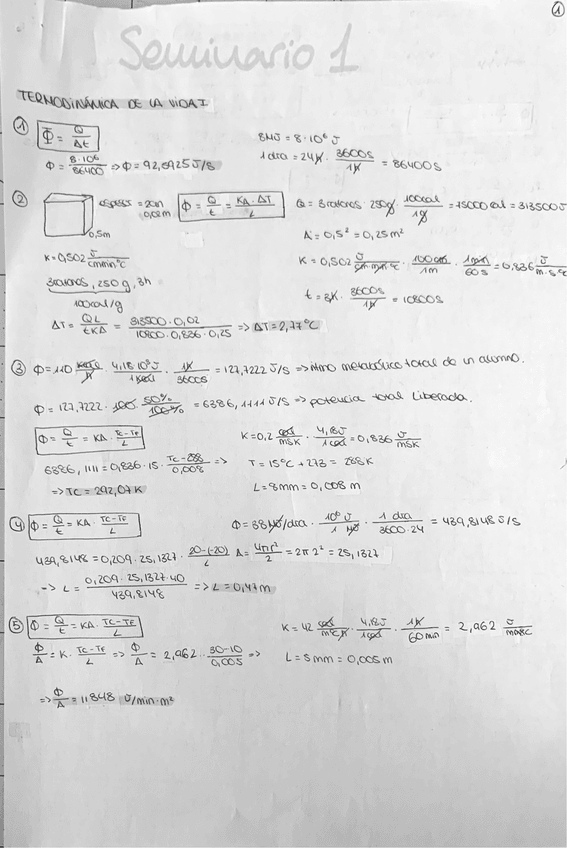 1
Seminario 1
TERMODINÁMICA DE LA VIDA I
① Φ = Q/Δt
8MJ = 8·10⁶ J
Φ = 8·10⁶/86400 => Φ = 92,5925 J/S
1 dia = 24h · 3600s/1h = 86400s
② espesor = 2cm
0,02m
0,5m
Φ = Q/t = KA·ΔT/L
Q = 3 ratones · 250g · 100cal/1g = 75000 cal = 313500J
A = 0,5² = 0,25m²
K = 0,502 J/cm min °C
K = 0,502 J/cm·min·°C · 100cm/1m · 1min/60s = 0,836 J/m·s·°C
3 ratones, 250 g, 3h
100cal/g
t = 3h · 3600s/1h = 10800s
ΔT = QL/tKA = 313500·0,02/10800·0,836·0,25 => ΔT = 2,77°C
③ Φ = 110 Kcal/h · 4,18·10³J/1Kcal · 1h/3600s = 127,7222 J/S => ritmo metabólico total de un alumno.
Φ = 127,7222 · 100 · 50%/100% = 6386,1111 J/S => potencia total liberada.
Φ = Q/t = KA · Tc-TF/L
K = 0,2 cal/msK · 4,18J/1cal = 0,836 J/msK
6386,1111 = 0,836·15 · Tc-288/0,008 =>
T = 15°C + 273 = 288K
=> TC = 292,07K
L = 8mm = 0,008m
④ Φ = Q/t = KA · TC-TF/L
Φ = 38 MJ/dia · 10⁶ J/1 MJ · 1 dia/3600·24 = 439,8148 J/S
439,8148 = 0,209·25,1327 · 20-(-20)/L A = 4πr²/2 = 2π2² = 25,1327
-> L = 0,209·25,1327·40/439,8148 => L = 0,47m
⑤ Φ = Q/t = KA · TC-TF/L
K = 42 · 4,18J/1cal · 1h/60min = 2,962
Φ/A = K · TC-TF/L => Φ/A = 2,962 · 30-10/0,005 =>
L = 5mm = 0,005m
=> Φ/A = 11848 J/min·m²